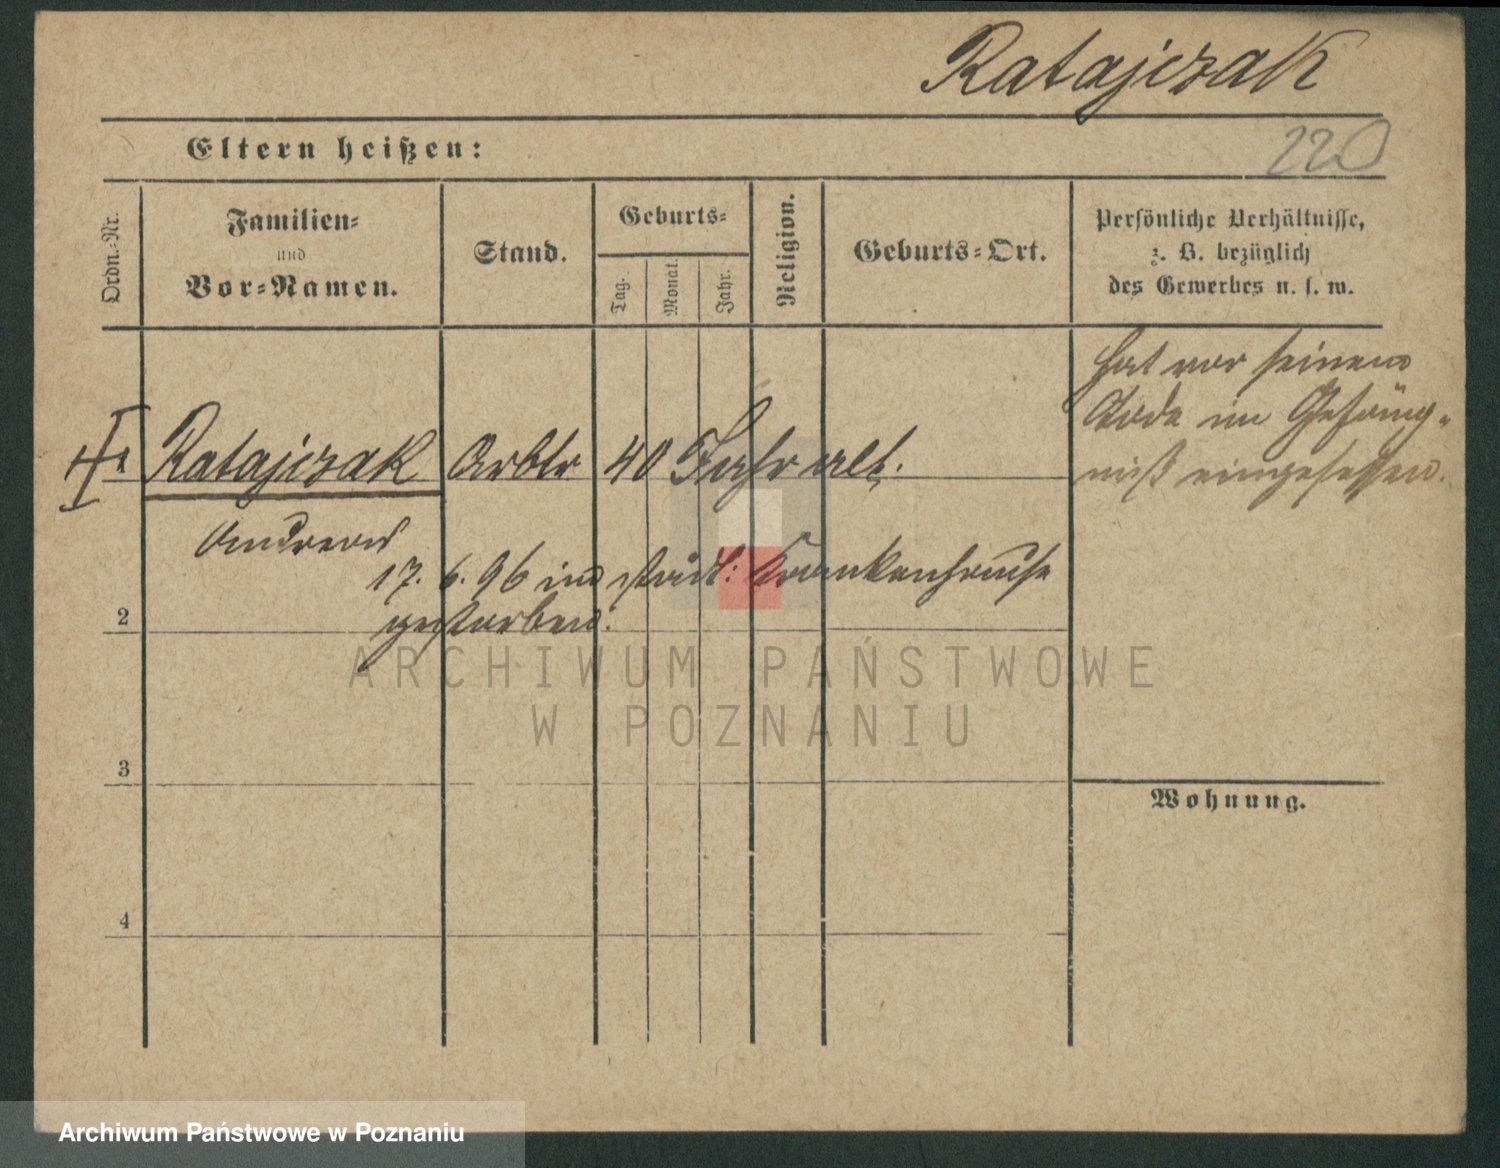 Ratajczak
220
Eltern heißen:
Ordn.-Nr.
Familien-
und
Vor-Namen.
Stand.
Geburts-
Tag.
Monat.
Jahr.
Religion.
Geburts-Ort.
Persönliche Verhältnisse,
z. B. bezüglich
des Gewerbes u. s. w.
Hat vor seinem
Tode im Gefäng-
niß eingesessen.
Ratajczak Arbtr 40 Jahr alt.
Andreas
17. 6. 96 im städt: Krankenhause
gestorben.
2
3
4
Wohnung.
ARCHIWUM PAŃSTWOWE
W POZNANIU
Archiwum Państwowe w Poznaniu